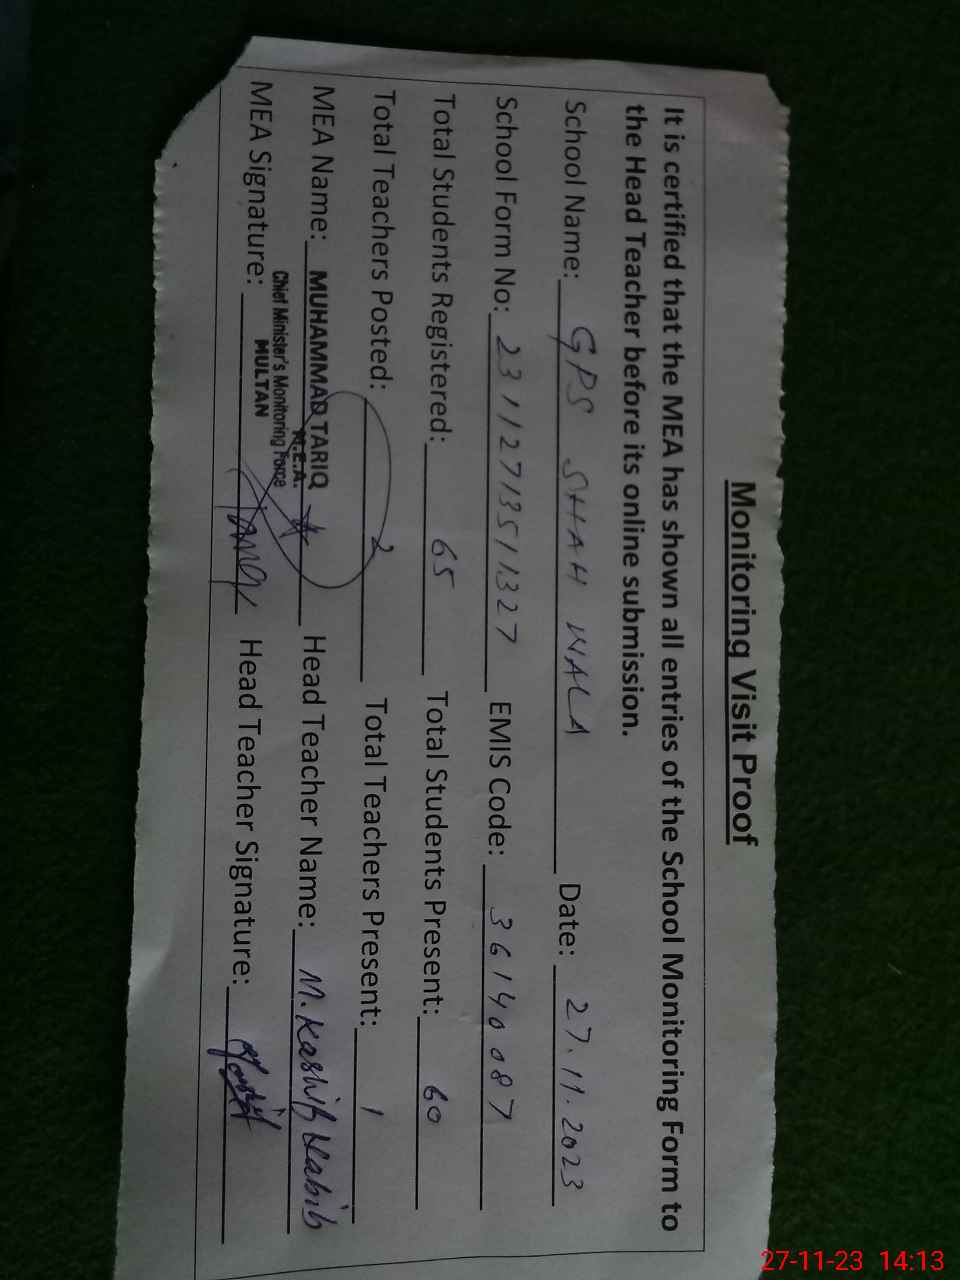 Monitoring Visit Proof
It is certified that the MEA has shown all entries of the School Monitoring Form to
the Head Teacher before its online submission.
School Name: GPS SHAH WALA Date: 27.11.2023
School Form No: 231127135 1327 EMIS Code: 36140087
Total Students Registered: 65 Total Students Present: 60
Total Teachers Posted: 2 Total Teachers Present: 1
MEA Name: MUHAMMAD TARIQ Head Teacher Name: M. Kashif Habib
M.E.A.
Chief Minister's Monitoring Force
MULTAN
MEA Signature: Head Teacher Signature:
27-11-23 14:13